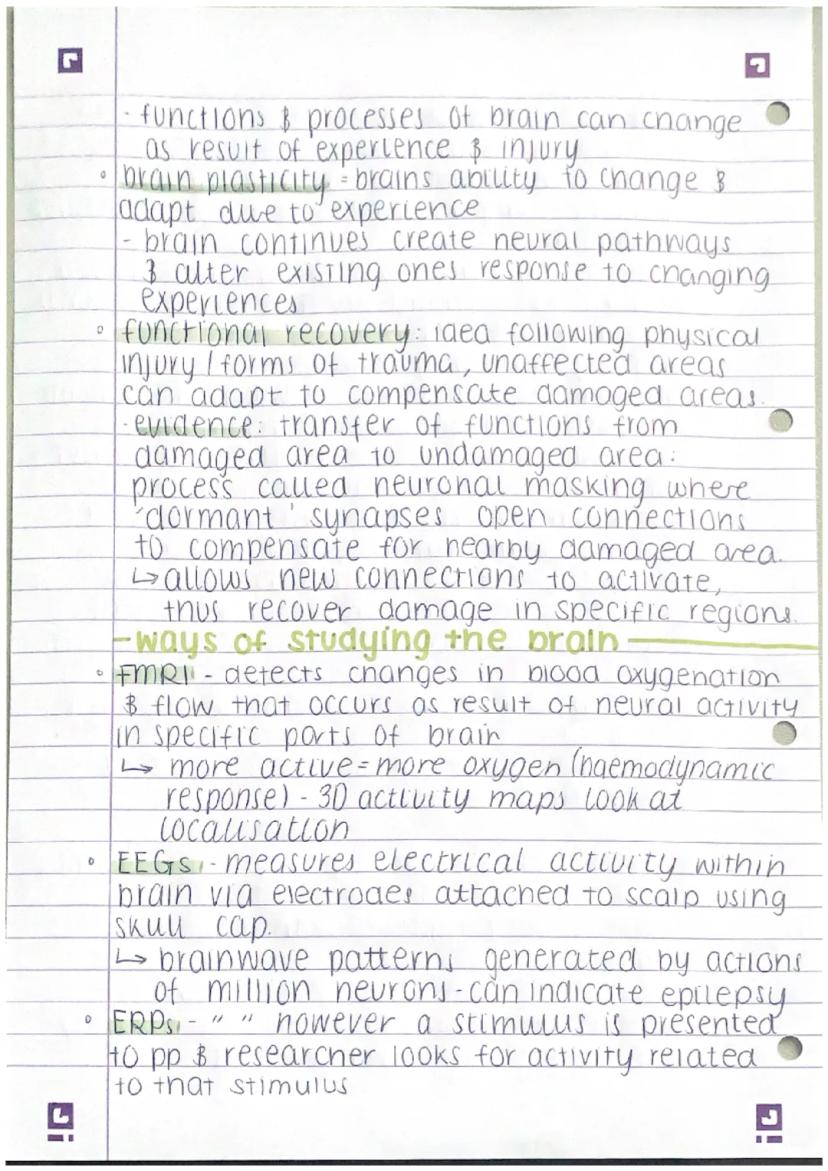 - functions & processes of brain can change
as result of experience & injury
◦ brain plasticity = brains ability to change &
adapt due to experience
- brain continues create neural pathways
& alter existing ones response to changing
experiences
◦ functional recovery: idea following physical
injury / forms of trauma, unaffected areas
can adapt to compensate damaged areas.
- evidence: transfer of functions from
damaged area to undamaged area:
process called neuronal masking where
'dormant' synapses open connections
to compensate for nearby damaged area.
↳ allows new connections to activate,
thus recover damage in specific regions.
- ways of studying the brain
◦ FMRI - detects changes in blood oxygenation
& flow that occurs as result of neural activity
in specific parts of brain
↳ more active = more oxygen (haemodynamic
response) - 3D activity maps look at
localisation
◦ EEGs - measures electrical activity within
brain via electrodes attached to scalp using
skull cap.
↳ brainwave patterns generated by actions
of million neurons - can indicate epilepsy
◦ ERPs - " " however a stimulus is presented
to pp & researcher looks for activity related
to that stimulus